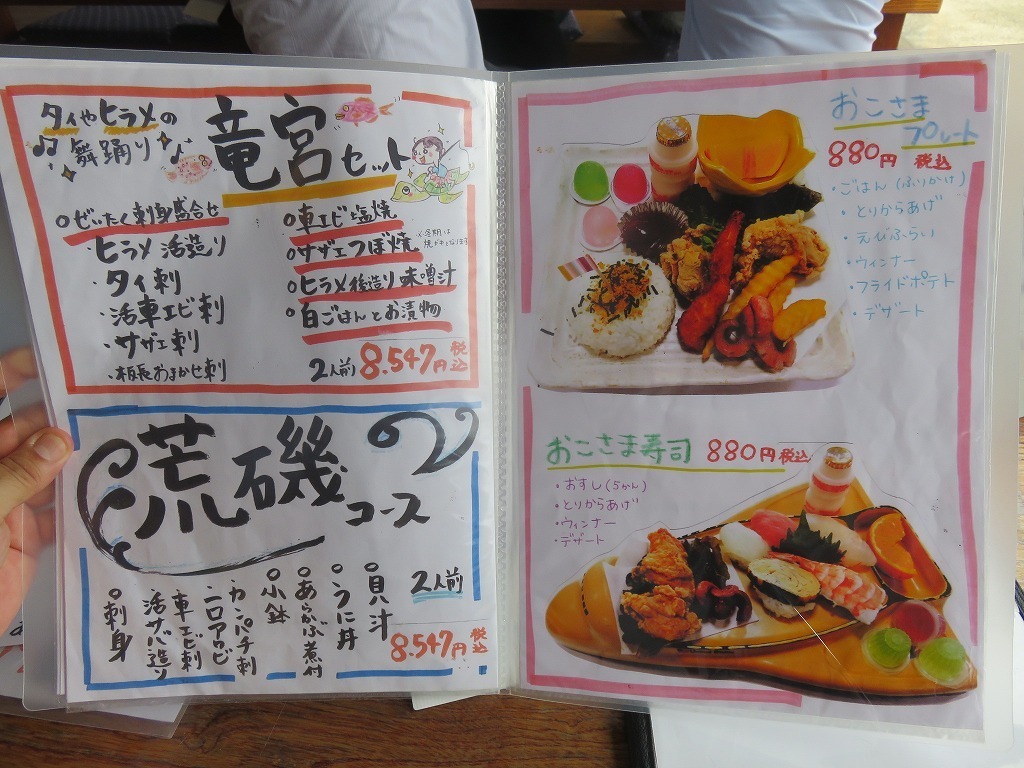 タイやヒラメの
舞踊り
竜宮セット
○ぜいたく刺身盛合せ
ヒラメ活造り
・タイ刺
・活車エビ刺
・サザエ刺
・板長おまかせ刺
○車エビ塩焼
○サザエつぼ焼
○ヒラメ後造り味噌汁
○白ごはんとお漬物
2人前 8.547円 税込
荒磯コース
2人前
○貝汁
○うに丼
○あらかぶ煮付
○小鉢
カンパチ刺
ニロアワビ
車エビ刺
活サバ造り
○刺身
8.547円 税込
おこさま
プレート
880円 税込
・ごはん(ふりかけ)
・とりからあげ
・えびふらい
・ウィンナー
・フライドポテト
・デザート
おこさま寿司 880円 税込
・おすし(5かん)
・とりからあげ
・ウィンナー
・デザート